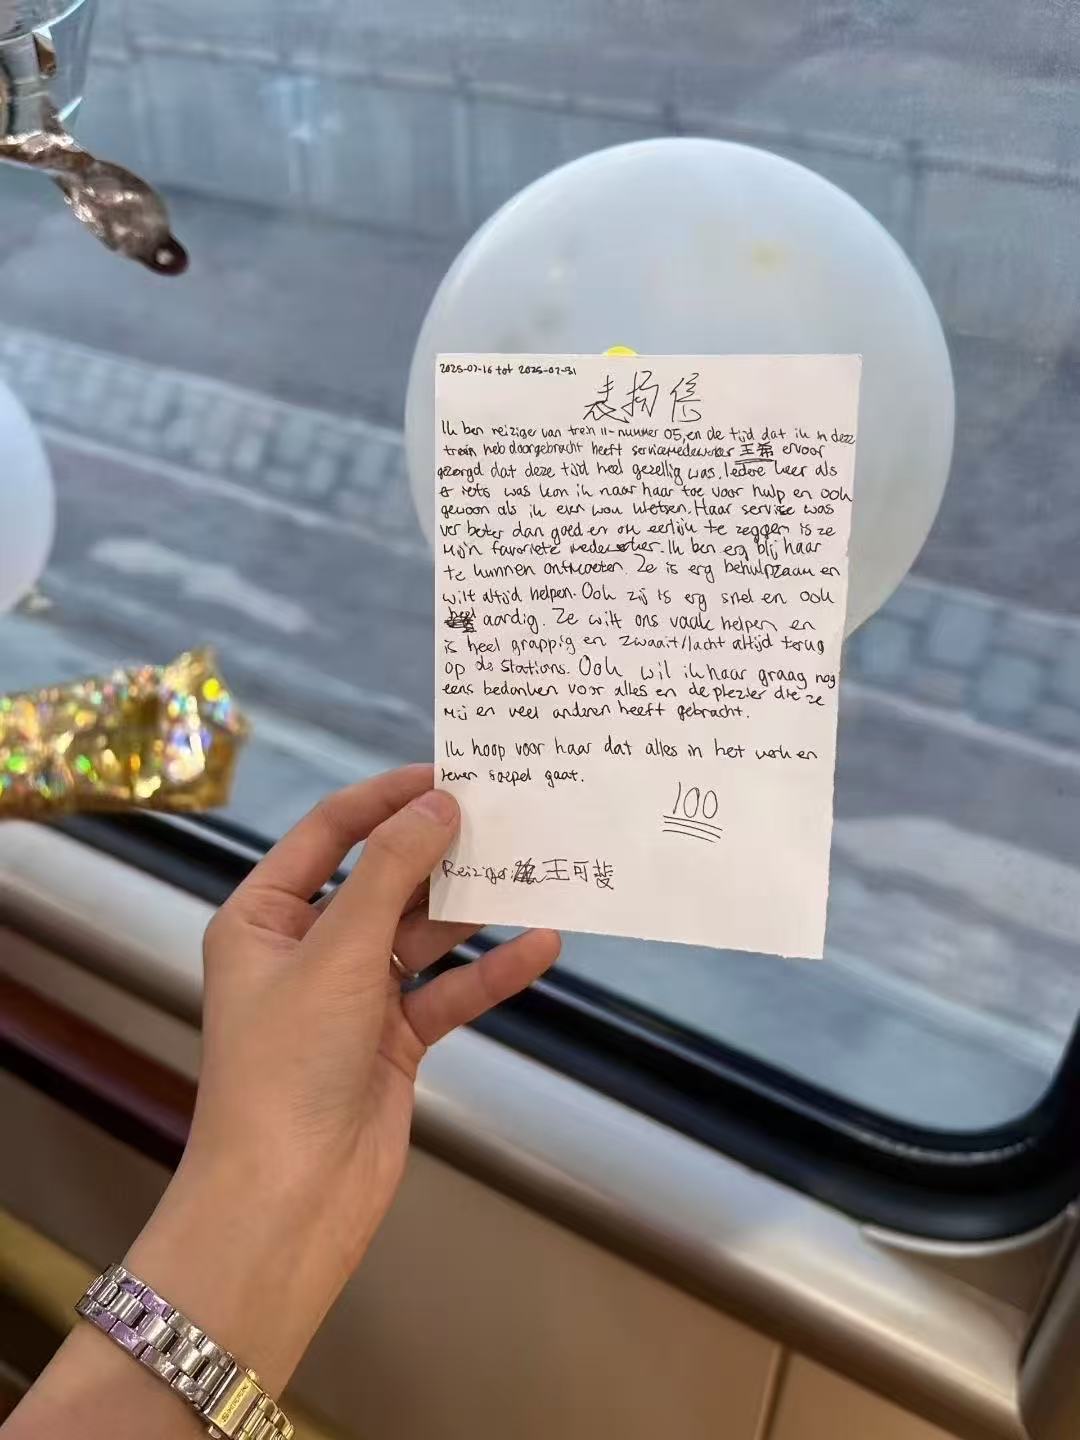 2025-07-16 tot 2025-07-31
表扬信
Ik ben reiziger van trein 11-nummer 05, en de tijd dat ik in deze
trein heb doorgebracht heeft servicemedewerker 王希 ervoor
gezorgd dat deze tijd heel gezellig was. Iedere keer als
er iets was kon ik naar haar toe voor hulp en ook
gewoon als ik even wou kletsen. Haar service was
ver beter dan goed en om eerlijk te zeggen is ze
mijn favoriete medewerker. Ik ben erg blij haar
te kunnen ontmoeten. Ze is erg behulpzaam en
wilt altijd helpen. Ook zij is erg snel en ook
aardig. Ze wilt ons vaak helpen en
is heel grappig en zwaait/lacht altijd terug
op de stations. Ook wil ik haar graag nog
eens bedanken voor alles en de plezier die ze
mij en veel anderen heeft gebracht.
Ik hoop voor haar dat alles in het werk en
leven soepel gaat.
100
Reiziger: 王可斐